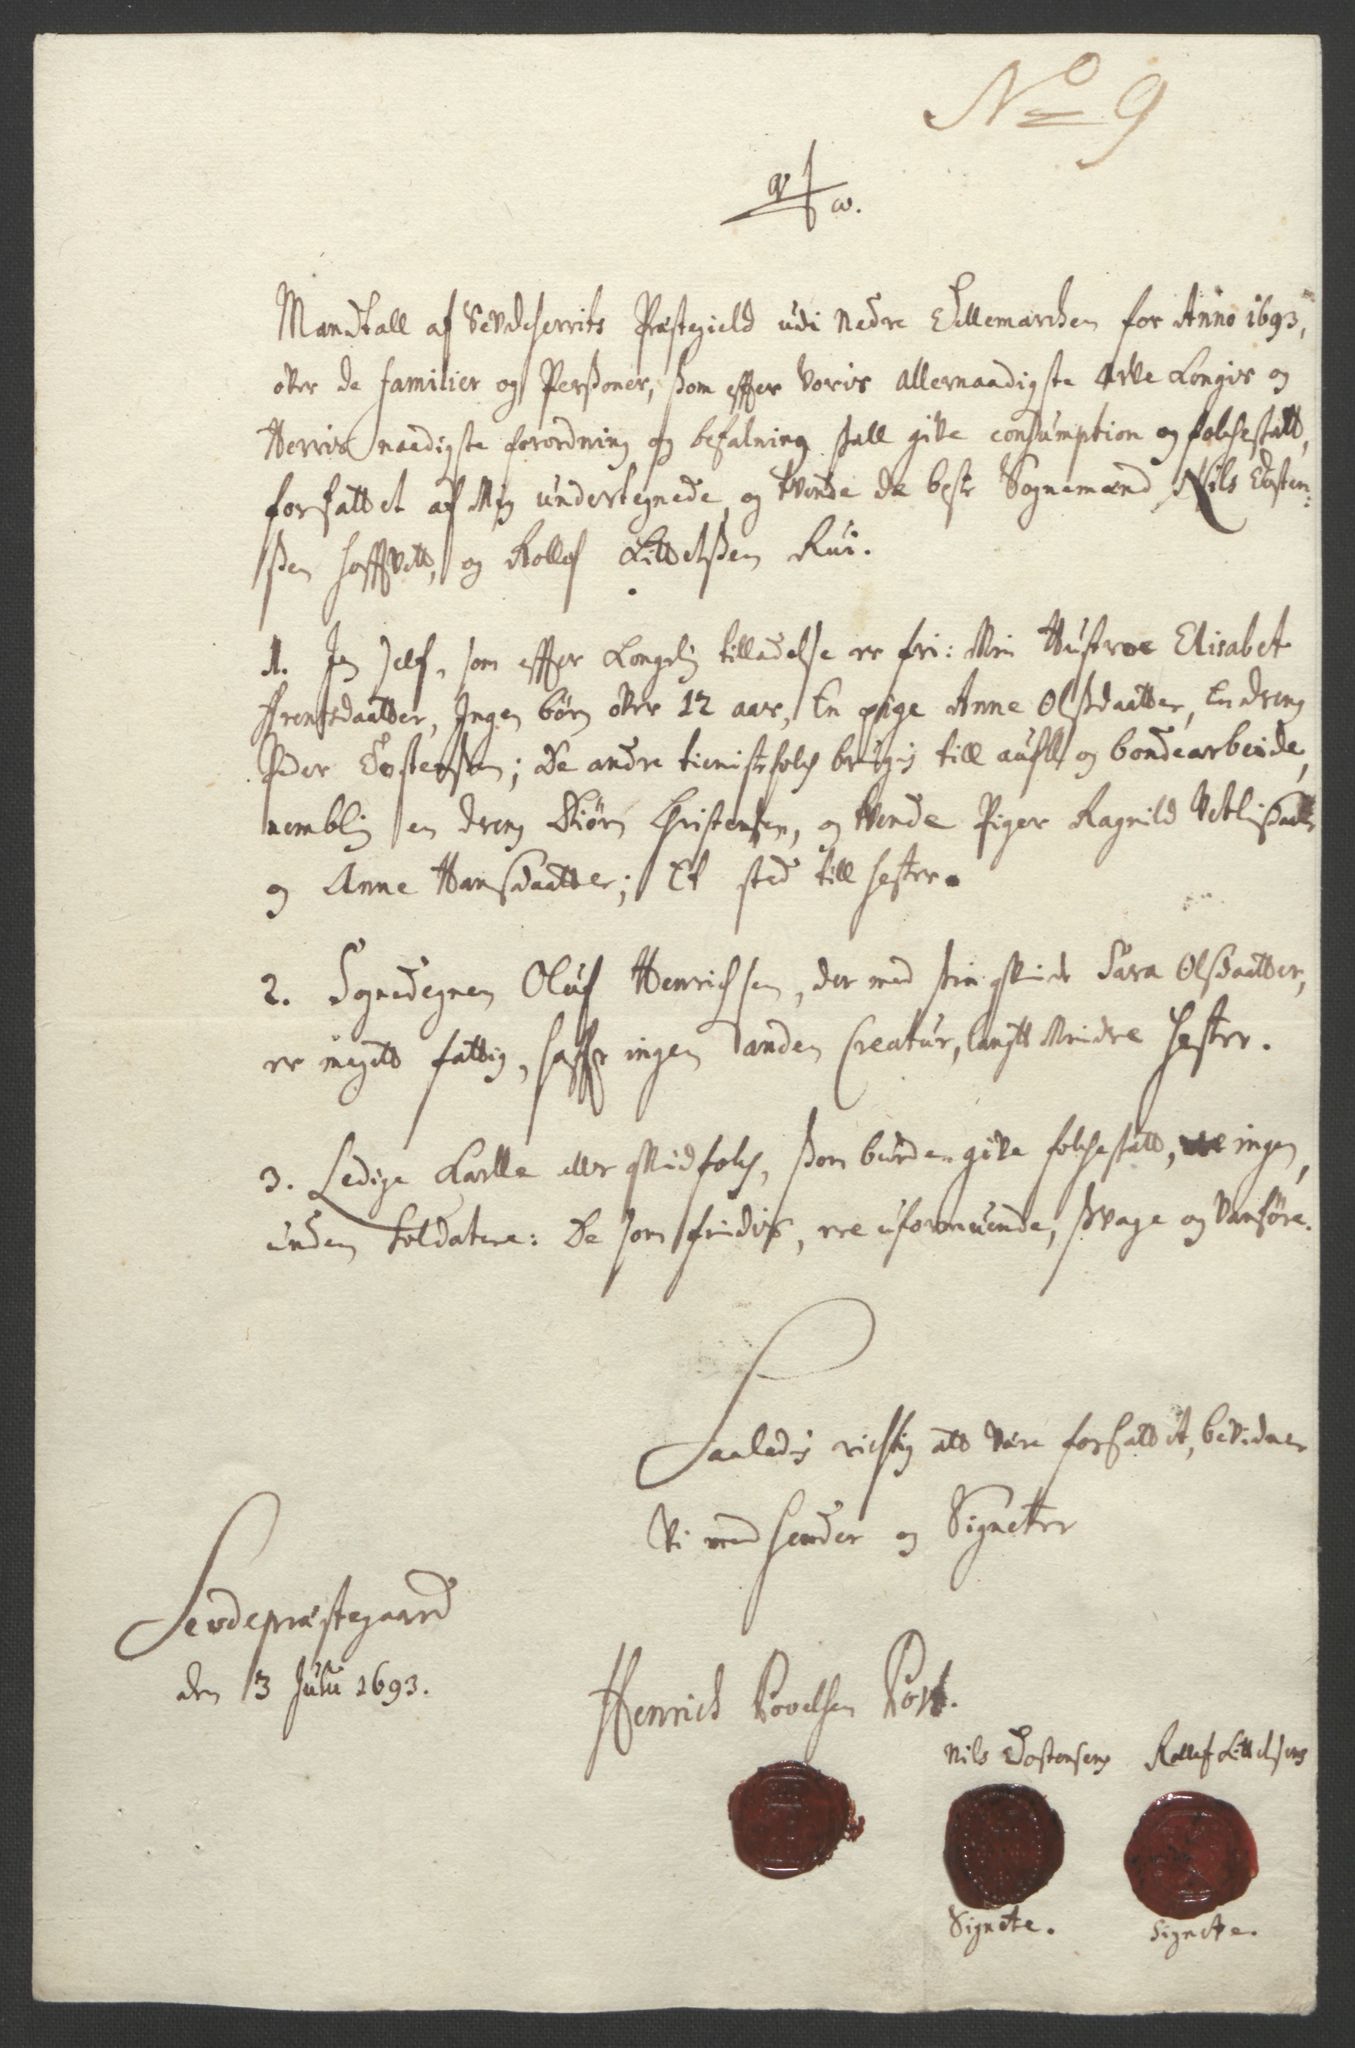 No 9
Mandtall af Sevdeherrits Præstegield udi Nedre Tellemarchen for Anno 1693,
over de familier og Personer, som efter Voris allernaadigste Arve Kongis og
Herris naadigste forordning og befalning skall give consumption og folcheskatt,
forfattet af Mig undertegnede og tvende de beste Sognemænd, Nils Tosten:
sen hoffvett, og Rollef Kittelsen Rui.
1. Jeg self, som effter Kongelig tilladelse er fri: Min Hustroe Elisabet
Frentsdaatter, Ingen børn over 12 aar, En pige Anne Olsdaatter, En dreng
Peder Tostensen; De andre tienistefolch brugis till aufll og bondearbeide,
nemblig en dreng Biørn Christensen, og tvende Piger Ragnild
og Anne Hansdaatter; Et sted till hester.
2. Sognedegnen Oluf Henrichsen, der med sin qvinde Sara Olsdaatter,
er megett fattig, haffr ingen anden Creatur, langtt Mindre hester.
3. Ledige Karlle eller qvindfolch, som burde give folcheskatt, er ingen,
uden Soldatene: De som findis, ere uformuende, svage og vanføre.
Saaledis richtig att være forfattet, bevidner
Vi med hender og Signeter
Sevdepræstegaard
den 3 Julii 1693.
Henrich Povelsen Post.
Nils Tostensens Rollef Kittelsens
Signete. Signete.